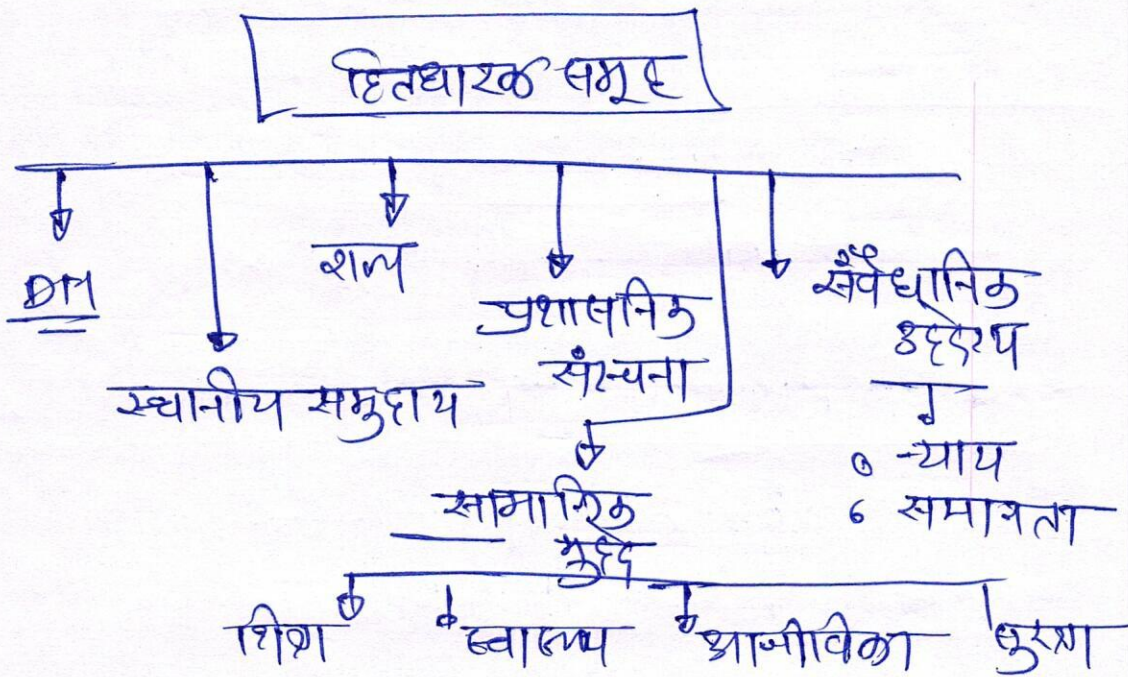 हितधारक समूह
DM
स्थानीय समुदाय
राज्य
प्रशासनिक
संरचना
संवैधानिक
उद्देश्य
न्याय
समानता
सामाजिक
मुद्दे
शिक्षा स्वास्थ्य आजीविका सुरक्षा